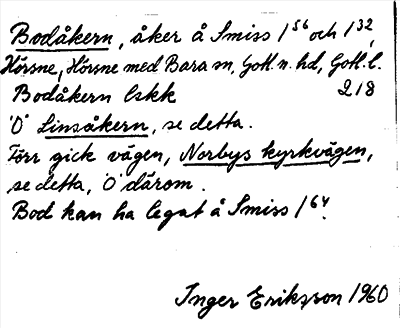 Bodåkern, åker å Smiss 1⁵⁶ och 1³²,
Hörsne, Hörsne med Bara sn, Gotl. n. hd, Gotl. l.
Bodåkern Lskk 218
"O" Linsåkern, se detta.
Förr gick vägen, Norbys kyrkvägen,
se detta, "O" därom.
Bod kan ha legat å Smiss 1⁶⁴.
Inger Eriksson 1960